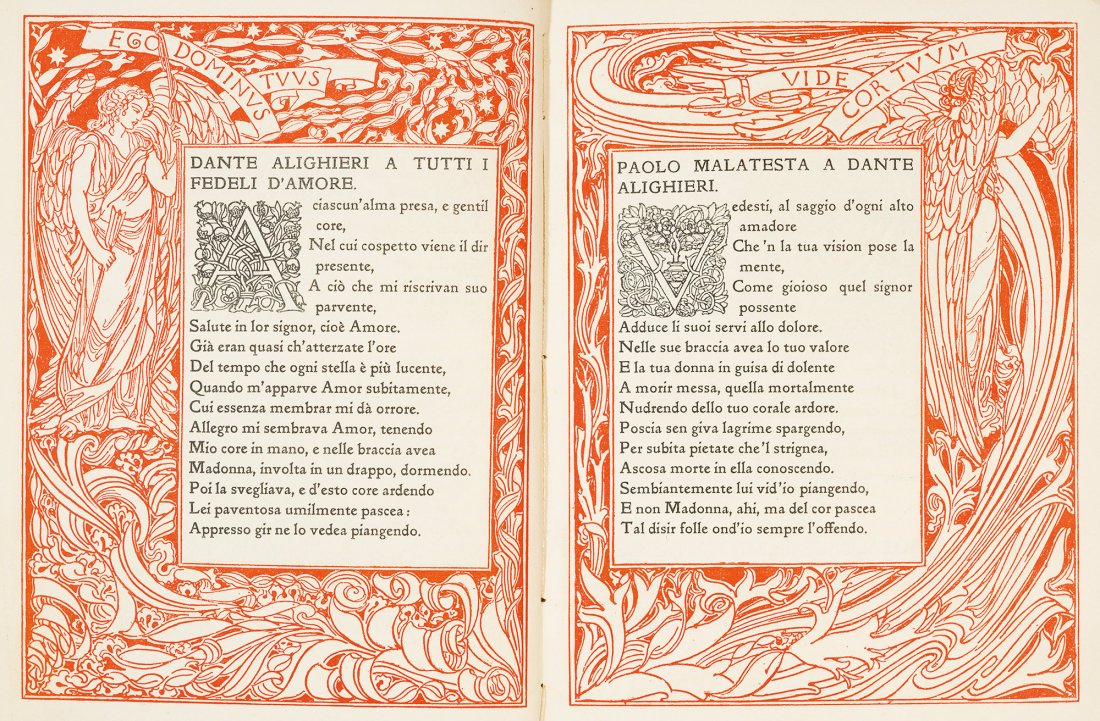 EGO DOMINUS TVVS
DANTE ALIGHIERI A TUTTI I
FEDELI D'AMORE.
A ciascun'alma presa, e gentil
core,
Nel cui cospetto viene il dir
presente,
A ciò che mi riscrivan suo
parvente,
Salute in lor signor, cioè Amore.
Già eran quasi ch'atterzate l'ore
Del tempo che ogni stella è più lucente,
Quando m'apparve Amor subitamente,
Cui essenza membrar mi dà orrore.
Allegro mi sembrava Amor, tenendo
Mio core in mano, e nelle braccia avea
Madonna, involta in un drappo, dormendo.
Poi la svegliava, e d'esto core ardendo
Lei paventosa umilmente pascea:
Appresso gir ne lo vedea piangendo.
VIDE COR TVVM
PAOLO MALATESTA A DANTE
ALIGHIERI.
Vedesti, al saggio d'ogni alto
amadore
Che 'n la tua vision pose la
mente,
Come gioioso quel signor
possente
Adduce li suoi servi allo dolore.
Nelle sue braccia avea lo tuo valore
E la tua donna in guisa di dolente
A morir messa, quella mortalmente
Nudrendo dello tuo corale ardore.
Poscia sen giva lagrime spargendo,
Per subita pietate che 'l strignea,
Ascosa morte in ella conoscendo.
Sembiantemente lui vid'io piangendo,
E non Madonna, ahi, ma del cor pascea
Tal disir folle ond'io sempre l'offendo.